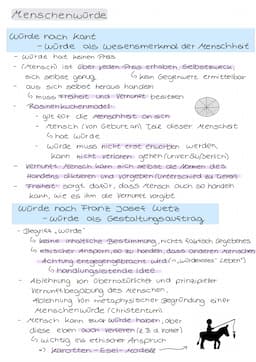 Menschenwürde
Würde nach Kant
- Würde als Wesensmerkmal der Menschheit
- Würde hat keinen Preis
- (Mensch) ist über jeden Preis erhaben, Selbstzweck,
sich selbst genug, ↳ kein Gegenwert ermittelbar
- aus sich selbst heraus handeln
↳ muss Freiheit und Vernunft besitzen
- "Rosinenkuchenmodell"
- gilt für die Menschheit an sich
- Mensch (von Geburt an) Teil dieser Menschheit
↳ hat Würde
- Würde muss nicht erst erworben werden,
kann nicht verloren gehen (unveräußerlich)
- Vernunft: Mensch kann sich selbst die Normen des
Handelns diktieren und vorgeben (Unterschied zu Tieren)
- Freiheit: sorgt dafür, dass Mensch auch so handeln
kann, wie es ihm die Vernunft vorgibt
Würde nach Franz Josef Wetz
- Würde als Gestaltungsauftrag
- Begriff "Würde"
↳ keine inhaltliche Bestimmung, nichts faktisch Gegebenes
↳ ethischer Anspruch, so zu handeln, dass anderen Menschen
Achtung entgegengebracht wird (→ "würdevolles" Leben)
↳ handlungsleitende Idee
- Ablehnung von übernatürlicher und prinzipieller
Vernunftbegabung des Menschen,
Ablehnung von metaphysischer Begründung einer
Menschenwürde (Christentum)
- Mensch kann zwar Würde haben, aber
diese eben auch verlieren (z.B. Folter)
↳ wichtig als ethischer Anspruch
↳ Karotten-Esel-Modell